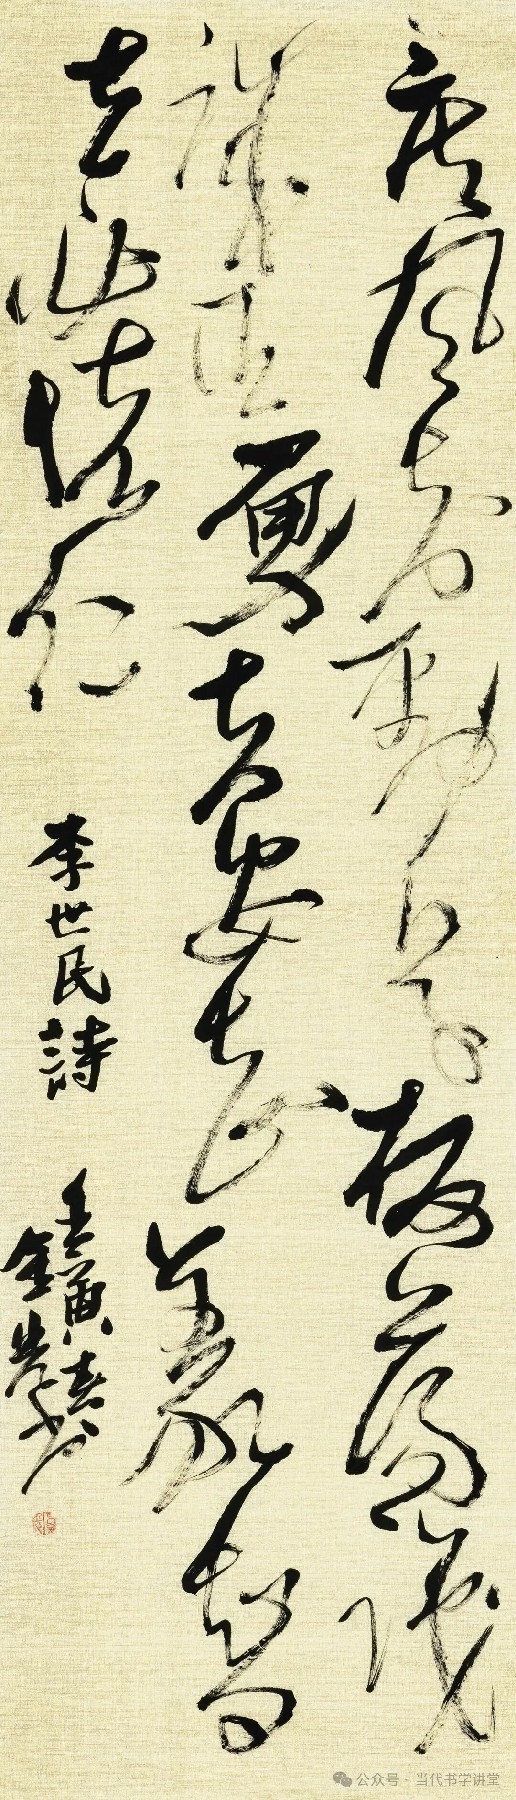 疾風知勁草板蕩識
誠臣勇夫安知義智
者必懷仁
李世民詩
壬寅春
公众号 · 当代书学讲堂